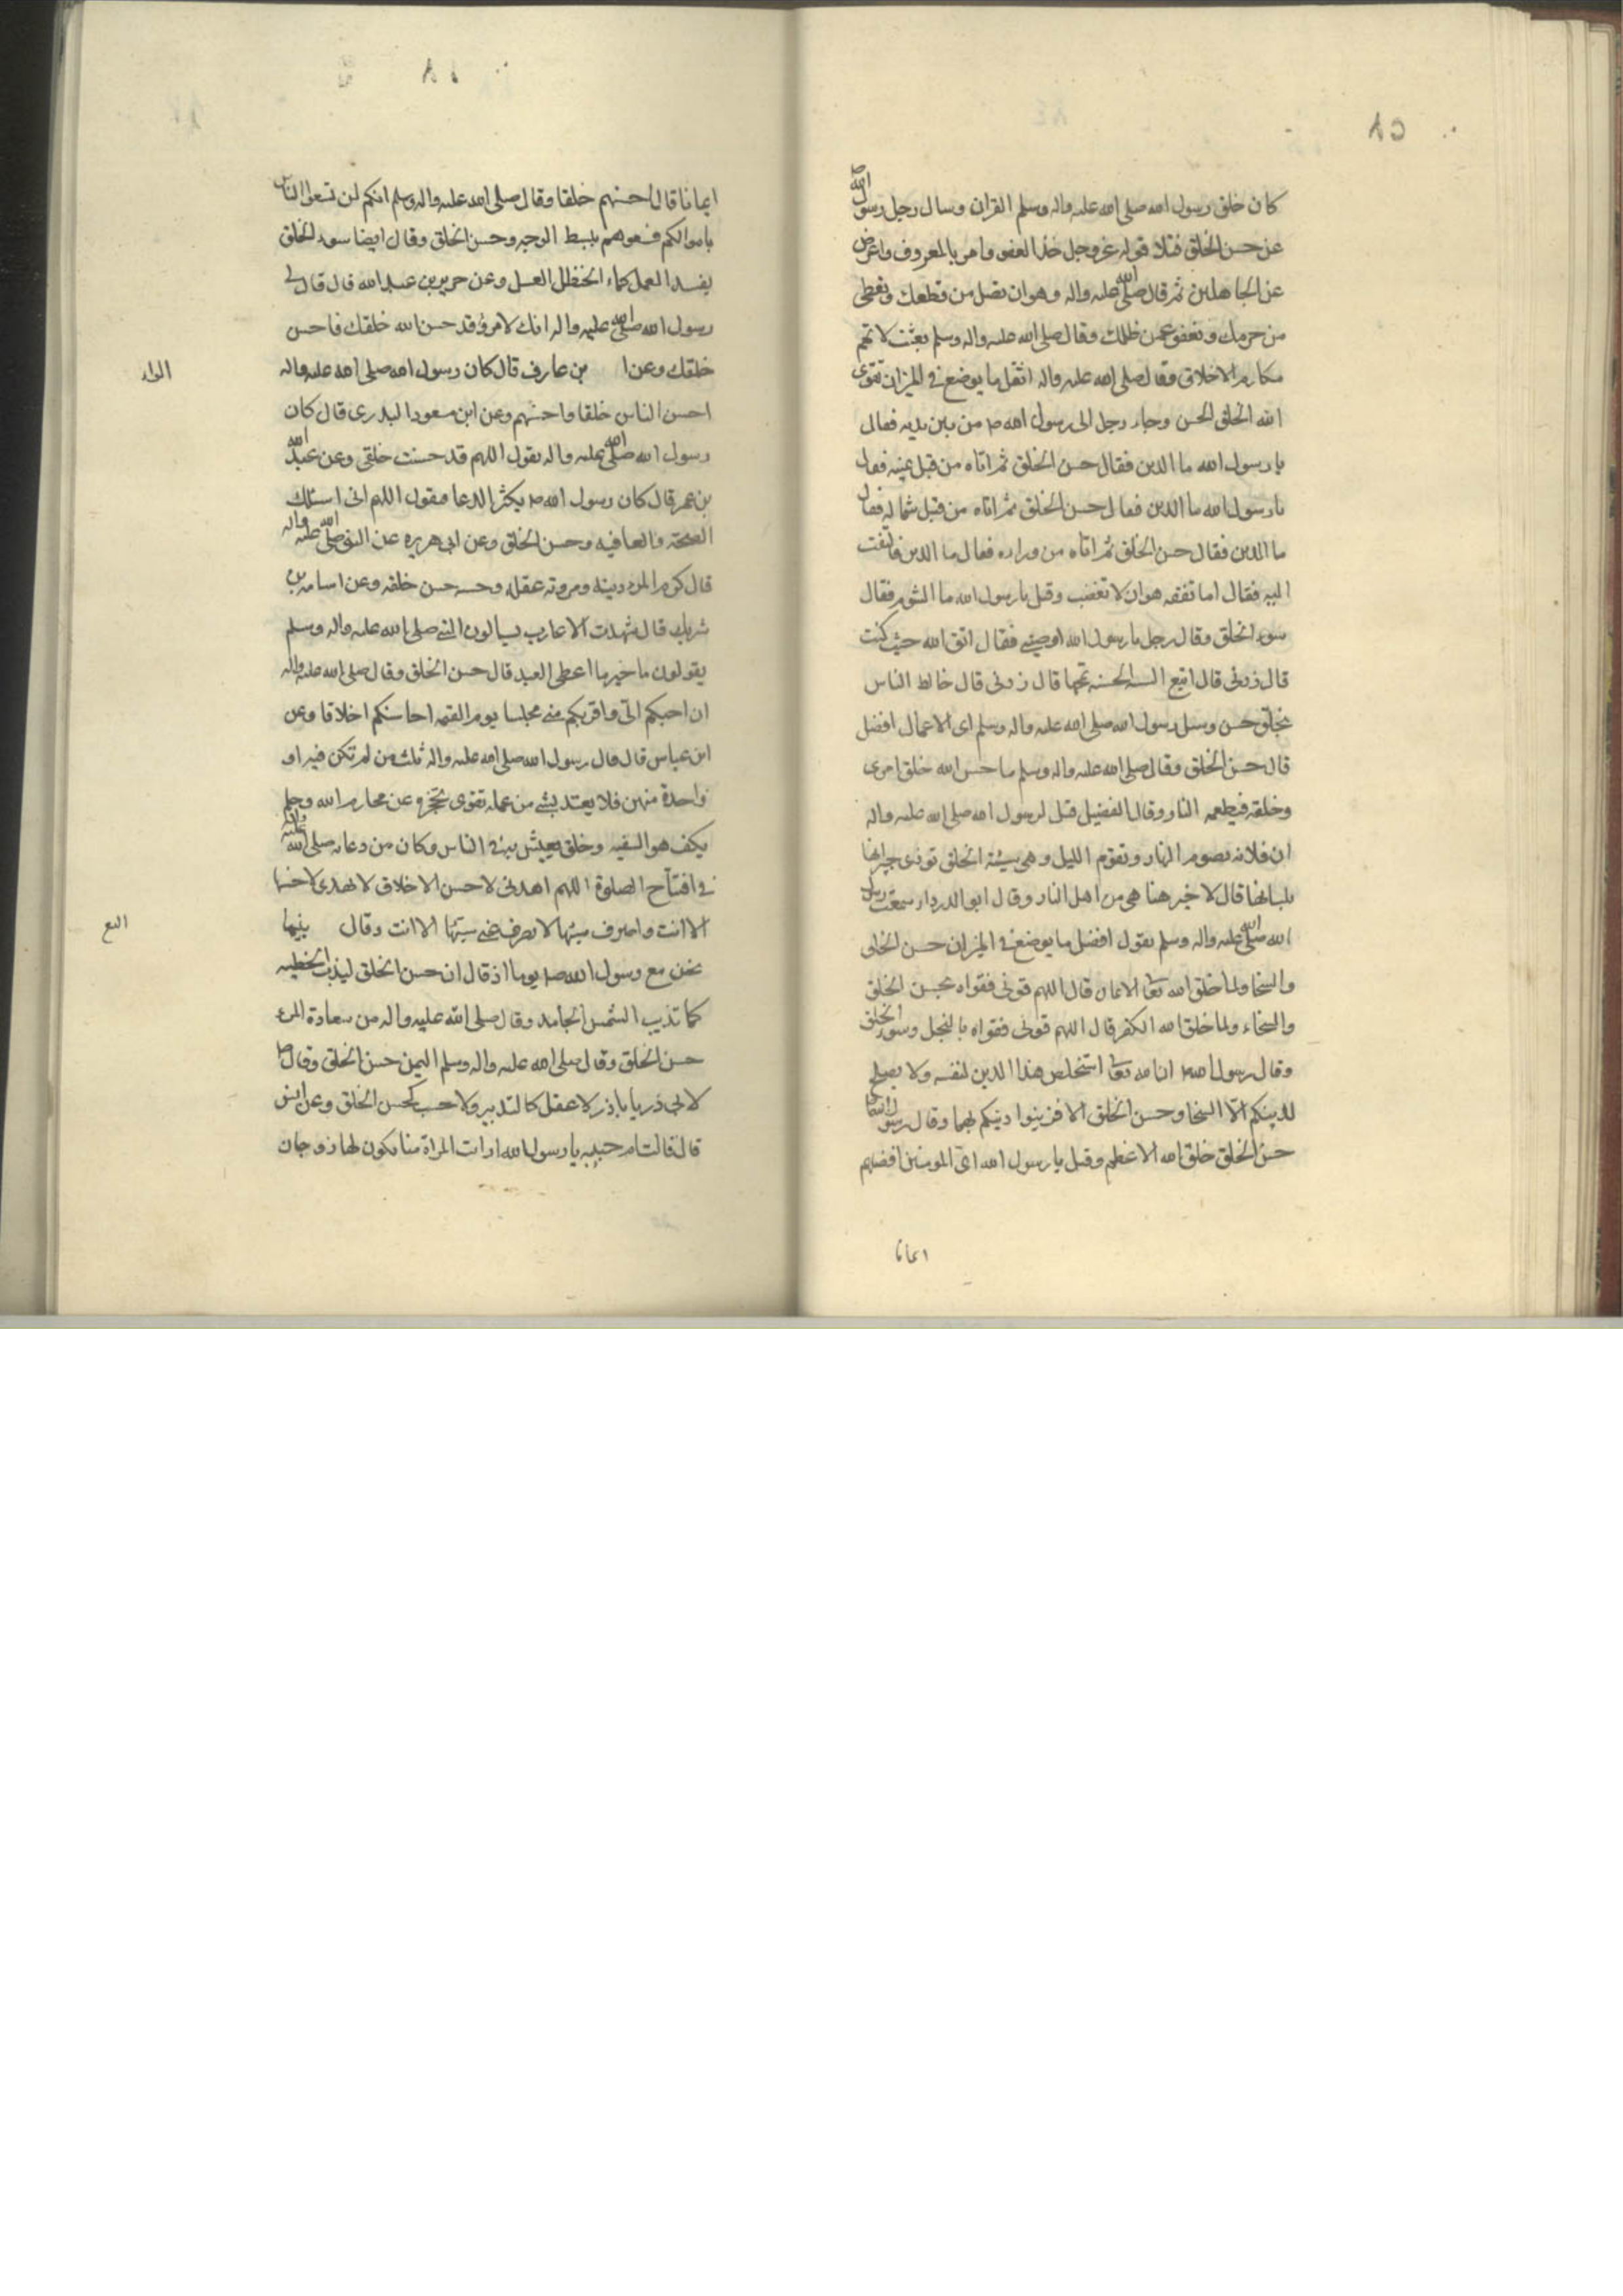 كان خلق رسول الله صلى الله عليه واله وسلم القران وسال رجل رسول الله
عن حسن الخلق فتلا قوله عز وجل خذ العفو وامر بالمعروف واعرض
عن الجاهلين ثم قال صلى الله عليه واله وهو ان تصل من قطعك وتعطى
من حرمك وتعفو عمن ظلمك وقال صلى الله عليه واله وسلم بعثت لاتمم
مكارم الاخلاق وقال صلى الله عليه واله اثقل ما يوضع فى الميزان تقوى
الله الخلق الحسن وجاء رجل الى رسول الله ص من بين يديه فقال
يا رسول الله ما الدين فقال حسن الخلق ثم اتاه من قبل يمينه فقال
يا رسول الله ما الدين فقال حسن الخلق ثم اتاه من قبل شماله فقال
ما الدين فقال حسن الخلق ثم اتاه من وراءه فقال ما الدين فالتفت
اليه فقال اما تفقه هو ان لا تغضب وقيل يا رسول الله ما الشوم فقال
سوء الخلق وقال رجل يا رسول الله اوصينى فقال اتق الله حيث كنت
قال زدنى قال اتبع السيه الحسنه تمحها قال زدنى قال خالط الناس
بخلق حسن وسئل رسول الله صلى الله عليه واله وسلم اى الاعمال افضل
قال حسن الخلق وقال صلى الله عليه واله وسلم ما حسن الله خلق امرى
وخلقه فيطعمه النار وقال الفضيل قيل لرسول الله صلى الله عليه واله
ان فلانه تصوم النهار وتقوم الليل وهى سيئة الخلق توذى جيرانها
بلسانها قال لا خير هنا هى من اهل النار وقال ابو الدرداء سمعت رسول
الله صلى الله عليه واله وسلم يقول افضل ما يوضع فى الميزان حسن الخلق
والسخا ولما خلق الله تعا الايمان قال اللهم قونى فقواه بحسن الخلق
والسخاء ولما خلق الله الكفر قال اللهم قونى فقواه بالبخل وسوء الخلق
وقال رسول الله ص ان الله تعا استخلص هذا الدين لنفسه ولا يصلح
لدينكم الا السخا وحسن الخلق الا فزينوا دينكم بهما وقال رسول الله
حسن الخلق خلق الله الاعظم وقيل يا رسول الله اى المومنين افضلهم
ايمانا
ايمانا قال احسنهم خلقا وقال صلى الله عليه واله وسلم انكم لن تسعوا الناس
باموالكم فسعوهم ببسط الوجه وحسن الخلق وقال ايضا سوء الخلق
يفسد العمل كماء الحنظل العسل وعن جرير بن عبد الله قال قال لى
رسول الله صلى الله عليه واله انك لامرؤ قد حسن الله خلقك فاحسن
خلقك وعن ا بن عازف قال كان رسول الله صلى الله عليه واله
البراء
احسن الناس خلقا واحسنهم وعن ابن مسعود البدرى قال كان
رسول الله صلى الله عليه واله يقول اللهم قد حسنت خلقى وعن عبد الله
بن عمر قال كان رسول الله ص يكثر الدعا فيقول اللهم انى اسئلك
الصحة والعافيه وحسن الخلق وعن ابى هريره عن النبى صلى الله عليه واله
قال كرم المرء دينه ومروته عقله وحسبه حسن خلقه وعن اسامه بن
شريك قال شهدت الاعاريب يسالون النبى صلى الله عليه واله وسلم
يقولون ما خير ما اعطى العبد قال حسن الخلق وقال صلى الله عليه واله
ان احبكم الى واقربكم منى مجلسا يوم القيمه احاسنكم اخلاقا وعن
ابن عباس قال قال رسول الله صلى الله عليه واله ثلث من لم تكن فيه او
واحدة منهن فلا يعتد بشى من عمله تقوى تحجزه عن محارم الله وحلم
يكف هو السفيه وخلق يعيش به فى الناس وكان من دعائه صلى الله عليه واله
فى افتتاح الصلوة اللهم اهدنى لاحسن الاخلاق لا يهدى لاحسنها
الا انت واصرف سيئها لا يصرف عنى سيئها الا انت وقال بينما
نحن مع رسول الله ص يوما اذ قال ان حسن الخلق ليذيب الخطيه
كما تذيب الشمس الجامد وقال صلى الله عليه واله من سعادة المرء
حسن الخلق وقال صلى الله عليه واله وسلم اليمن حسن الخلق وقال ص
لابى ذر يا باذر لا عقل كالتدبير ولا حسب كحسن الخلق وعن انس
قال قالت ام حبيبه يا رسول الله ارايت المراة منا يكون لها زوجان